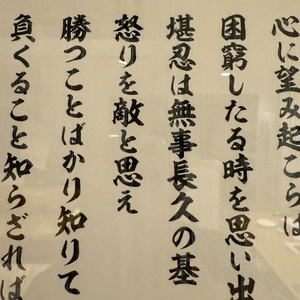 心に望み起こらは
困窮したる時を思い出
堪忍は無事長久の基
怒りを敵と思え
勝つことばかり知りて
負くること知らざれば